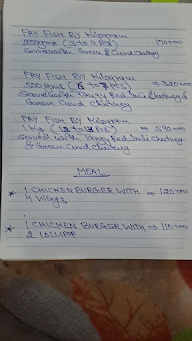 FRY FISH By Kilogram
250gms (3 to 4 Pcs) 170=00
Served with Green & Curd Chutney
FRY FISH By Kilogram
500 gms (6 to 7 Pcs) => 320=00
Served with Tangy Red Imli Chutney &
Green Curd Chutney
FRY FISH By Kilogram
1 kg (12 to 13 Pcs) => 590=00
Served with Tangy Red Imli Chutney
& Green Curd Chutney
MEAL
* 1 CHICKEN BURGER WITH => 120=00
4 Wings
* 1 CHICKEN BURGER WITH => 110=00
2 LOLLIPOP